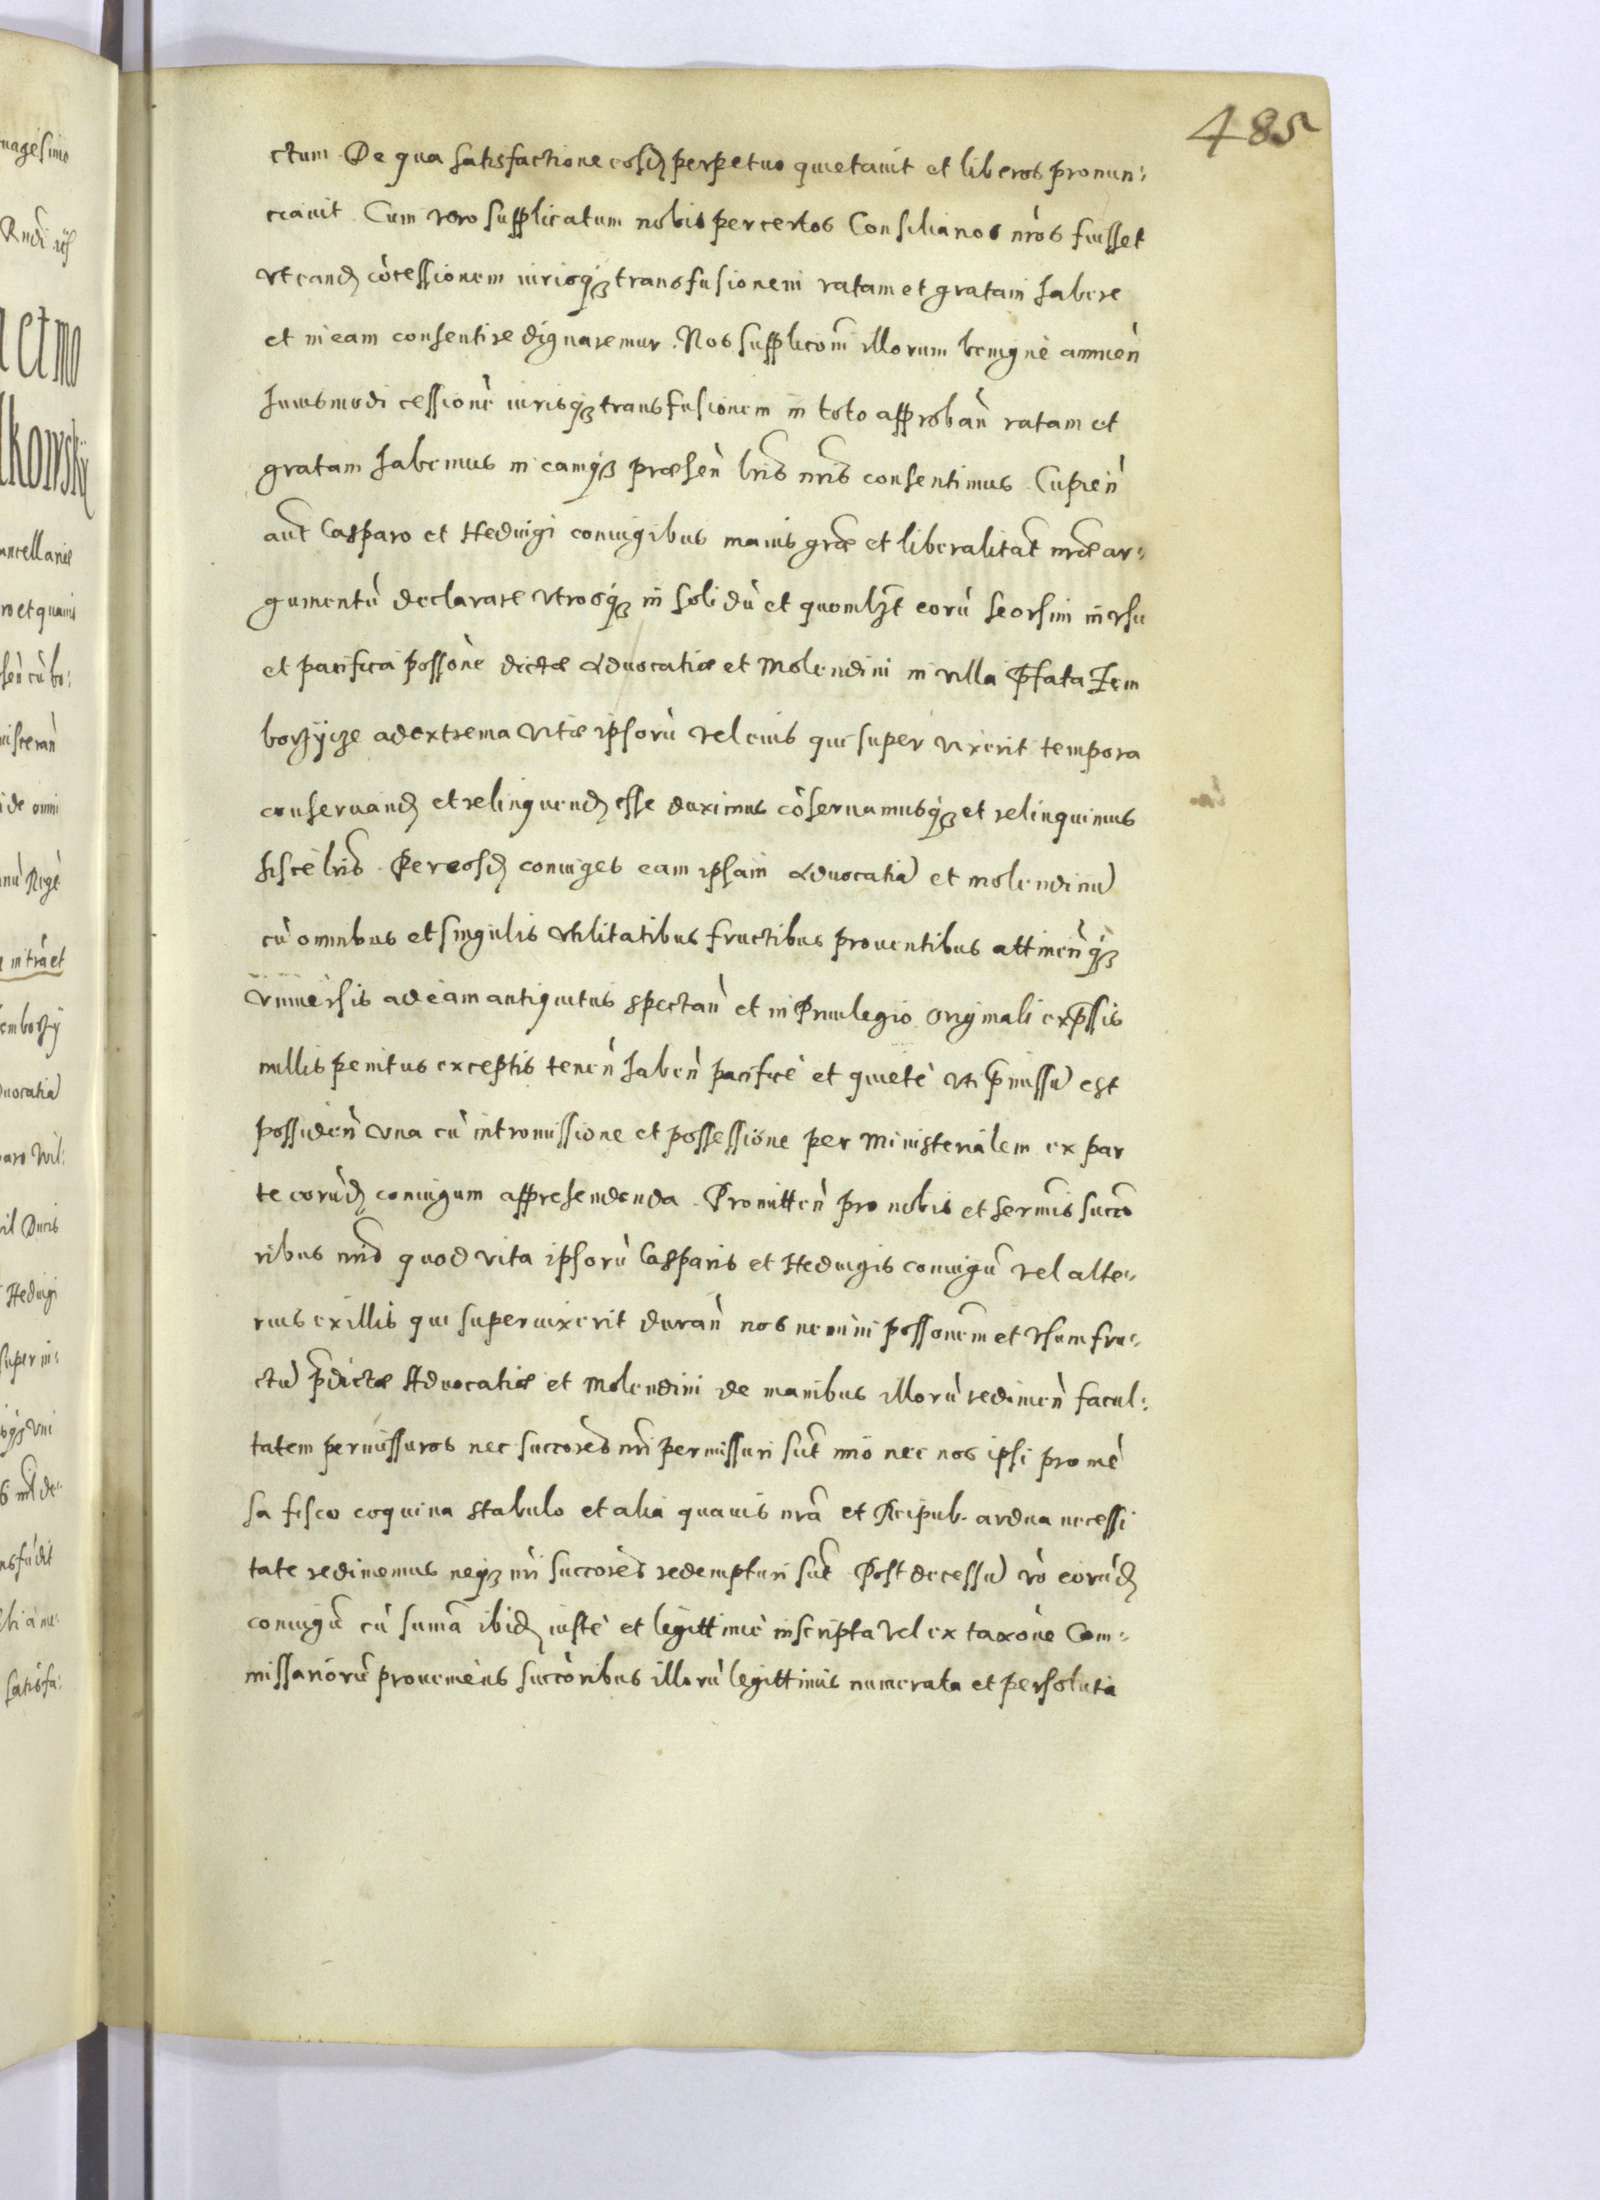 485
ctum. De qua satisfactione eosdꝫ perpetuo quietauit et liberos pronun:
ciauit. Cum vero supplicatum nobis per certos Consiliarios nr̃os fuisset
vt eandꝫ cõcessionem iurisqꝫ transfusionem ratam et gratam habere
et in eam consentire dignaremur. Nos supplicõni illorum benignè annueñ
huiusmodi cessionẽ iurisqꝫ transfusionem in toto approbañ ratam et
gratam habemus in eamqꝫ præseñ lr̃is nr̃is consentimus. Cupieñ
aũt Casparo et Hedvigi coniugibus maius gr̃æ et liberalitat̃ nr̃æ ar:
gumentũ declarare vtrosqꝫ in solidũ et quomlꝫt eorũ seorsim in vsu
et pacifica possõne dictæ Aduocatiæ et Molendini in villa p̃fata Zem
borzycze ad extrema vitæ ipsorũ vel eius qui super vixerit tempora
conseruandꝫ et relinquendꝫ esse duximus cõseruamusqꝫ et relinquimus
hisce lr̃is. Per eosdꝫ coniuges eam ipsam Aduocatiã et molendinũ
cũ omnibus et singulis vtilitatibus fructibus prouentibus attineñqꝫ
vniuersis ad eam antiquitus spectañ et in Priuilegio originali exp̃ssis
nullis penitus exceptis teneñ habeñ pacificè et quietè vti p̃missũ est
possideñ vna cũ intromissione et possessione per Ministerialem ex par
te eorũdꝫ coniugum apprehendenda. Promitteñ pro nobis et sermis succo
ribus nr̃is quod vita ipsorũ Casparis et Hedvigis coniugũ vel alte:
rius ex illis qui superuixerit durañ nos nemini possonem et vsumfru:
ctũ p̃dictæ Aduocatiæ et Molendini de manibus illorũ redimeñ facul:
tatem permissuros nec succores nr̃i permissuri sũt imõ nec nos ipsi pro mẽ
sa fisco coquina stabulo et alia quauis nr̃a et Reipub. ardua necessi
tate redimemus neqꝫ nr̃i succores redempturi sũt. Post decessũ vò eorũdꝫ
coniugũ cũ sum̃a ibidꝫ iustè et legittimè inscripta vel ex taxõne Com:
missariorũ proueniẽns succoribus illorũ legittimis numerata et persoluta